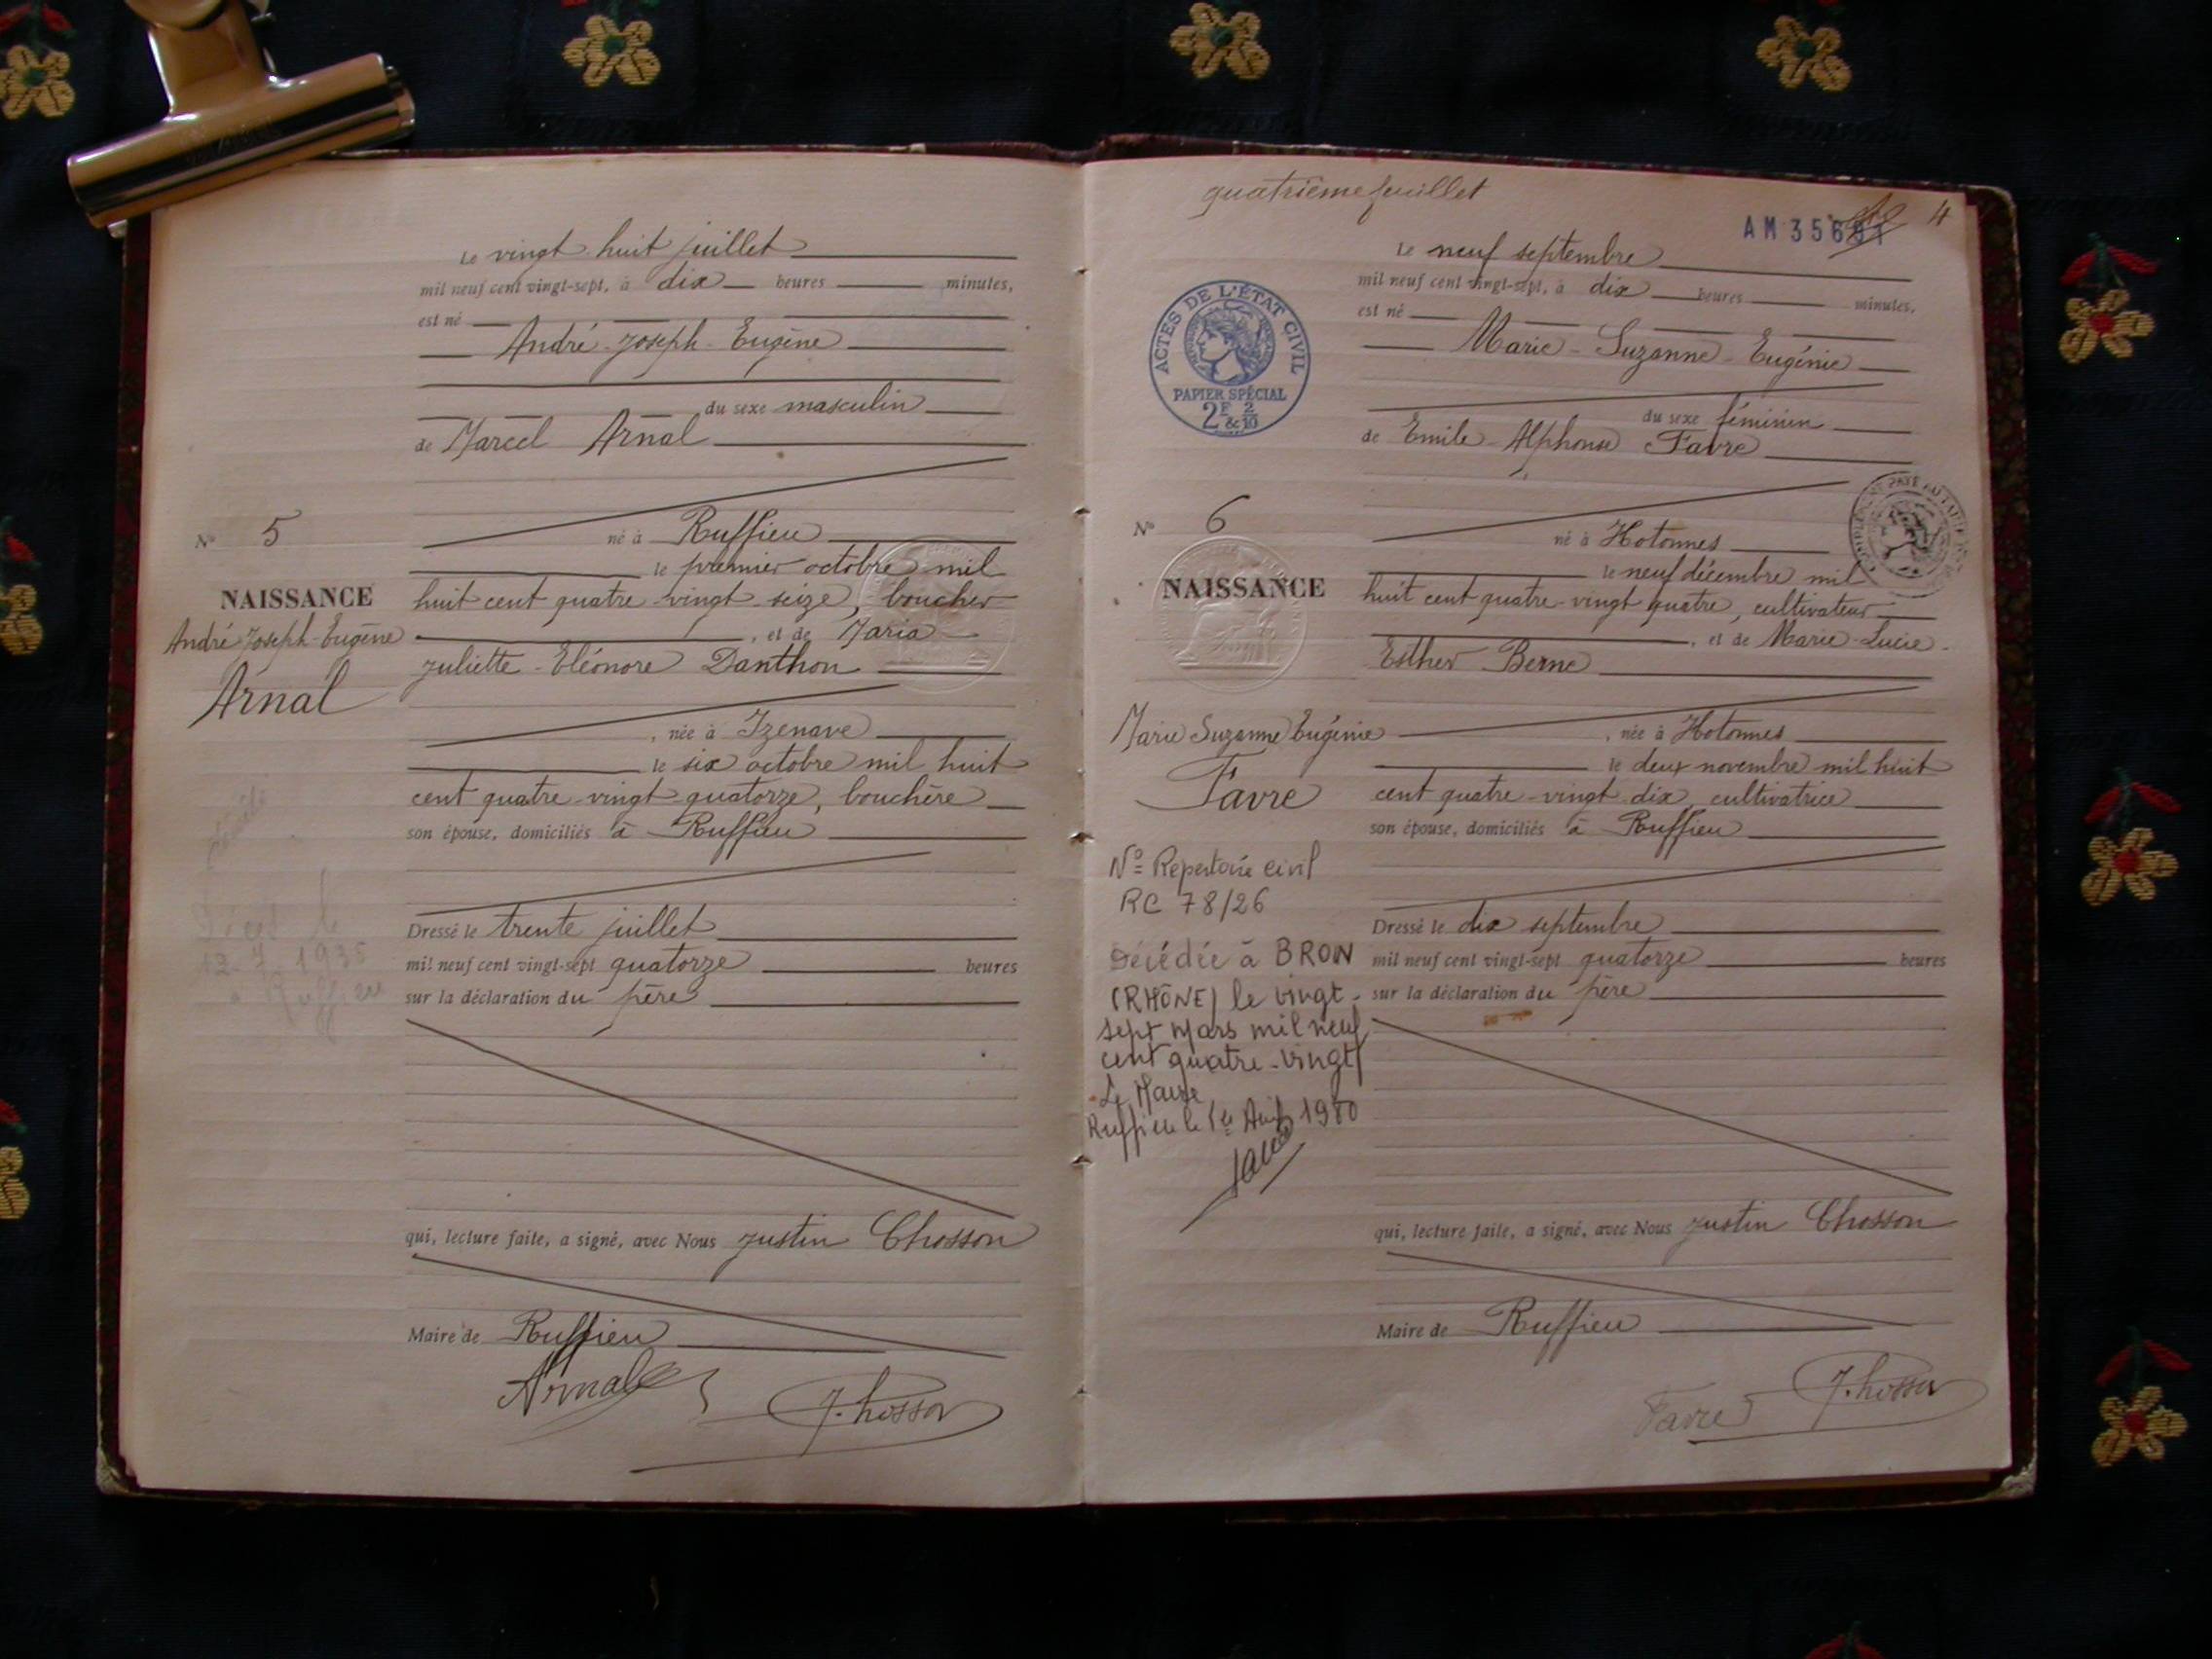 Le vingt huit juillet
mil neuf cent vingt-sept, à dix heures minutes,
est né
André-Joseph-Eugène
du sexe masculin
de Marcel Arnal
né à Ruffieu
le premier octobre mil
huit cent quatre-vingt-seize, boucher
, et de Maria
Juliette-Eléonore Danthon
, née à Izenave
le six octobre mil huit
cent quatre-vingt-quatorze, bouchère
son épouse, domiciliés à Ruffieu
Dressé le trente juillet
mil neuf cent vingt-sept quatorze heures
sur la déclaration du père
qui, lecture faite, a signé, avec Nous Justin Chosson
Maire de Ruffieu
Arnal
J. Chosson
N° 5
NAISSANCE
André Joseph-Eugène
Arnal
Décès le
1935
à Ruffieu
quatrième feuillet
AM 35691
4
Le neuf septembre
mil neuf cent vingt-sept, à dix heures minutes,
est né
Marie-Suzanne-Eugénie
du sexe féminin
de Emile-Alphonse Favre
né à Hotonnes
le neuf décembre mil
huit cent quatre-vingt quatre, cultivateur
, et de Marie-Lucie-
Esther Berne
, née à Hotonnes
le deux novembre mil huit
cent quatre-vingt-dix, cultivatrice
son épouse, domiciliés à Ruffieu
Dressé le dix septembre
mil neuf cent vingt-sept quatorze heures
sur la déclaration du père
qui, lecture faite, a signé, avec Nous Justin Chosson
Maire de Ruffieu
Favre
J. Chosson
ACTES DE L'ÉTAT CIVIL
PAPIER SPÉCIAL
2F & 2/10
N° 6
NAISSANCE
Marie Suzanne Eugénie
Favre
N° Repertoire civil
RC 78/26
Décédée à BRON
(RHÔNE) le vingt-
sept Mars mil neuf
cent quatre-vingt
Le Maire
Ruffieu le 1er Avril 1980